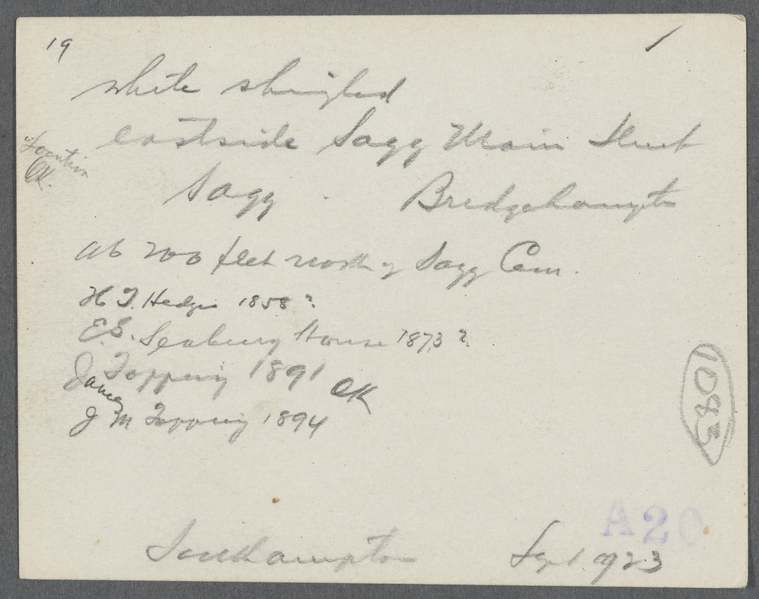 19
white shingled
eastside Sagg Main Street
Location
OK.
Sagg Bridgehampton
ab 200 feet north of Sagg Cem.
H T. Hedges 1858?
E.S. Seabury House 1873?
J Topping 1891 OK
James
J M Topping 1894
1083
A20
Southampton Sept 1923